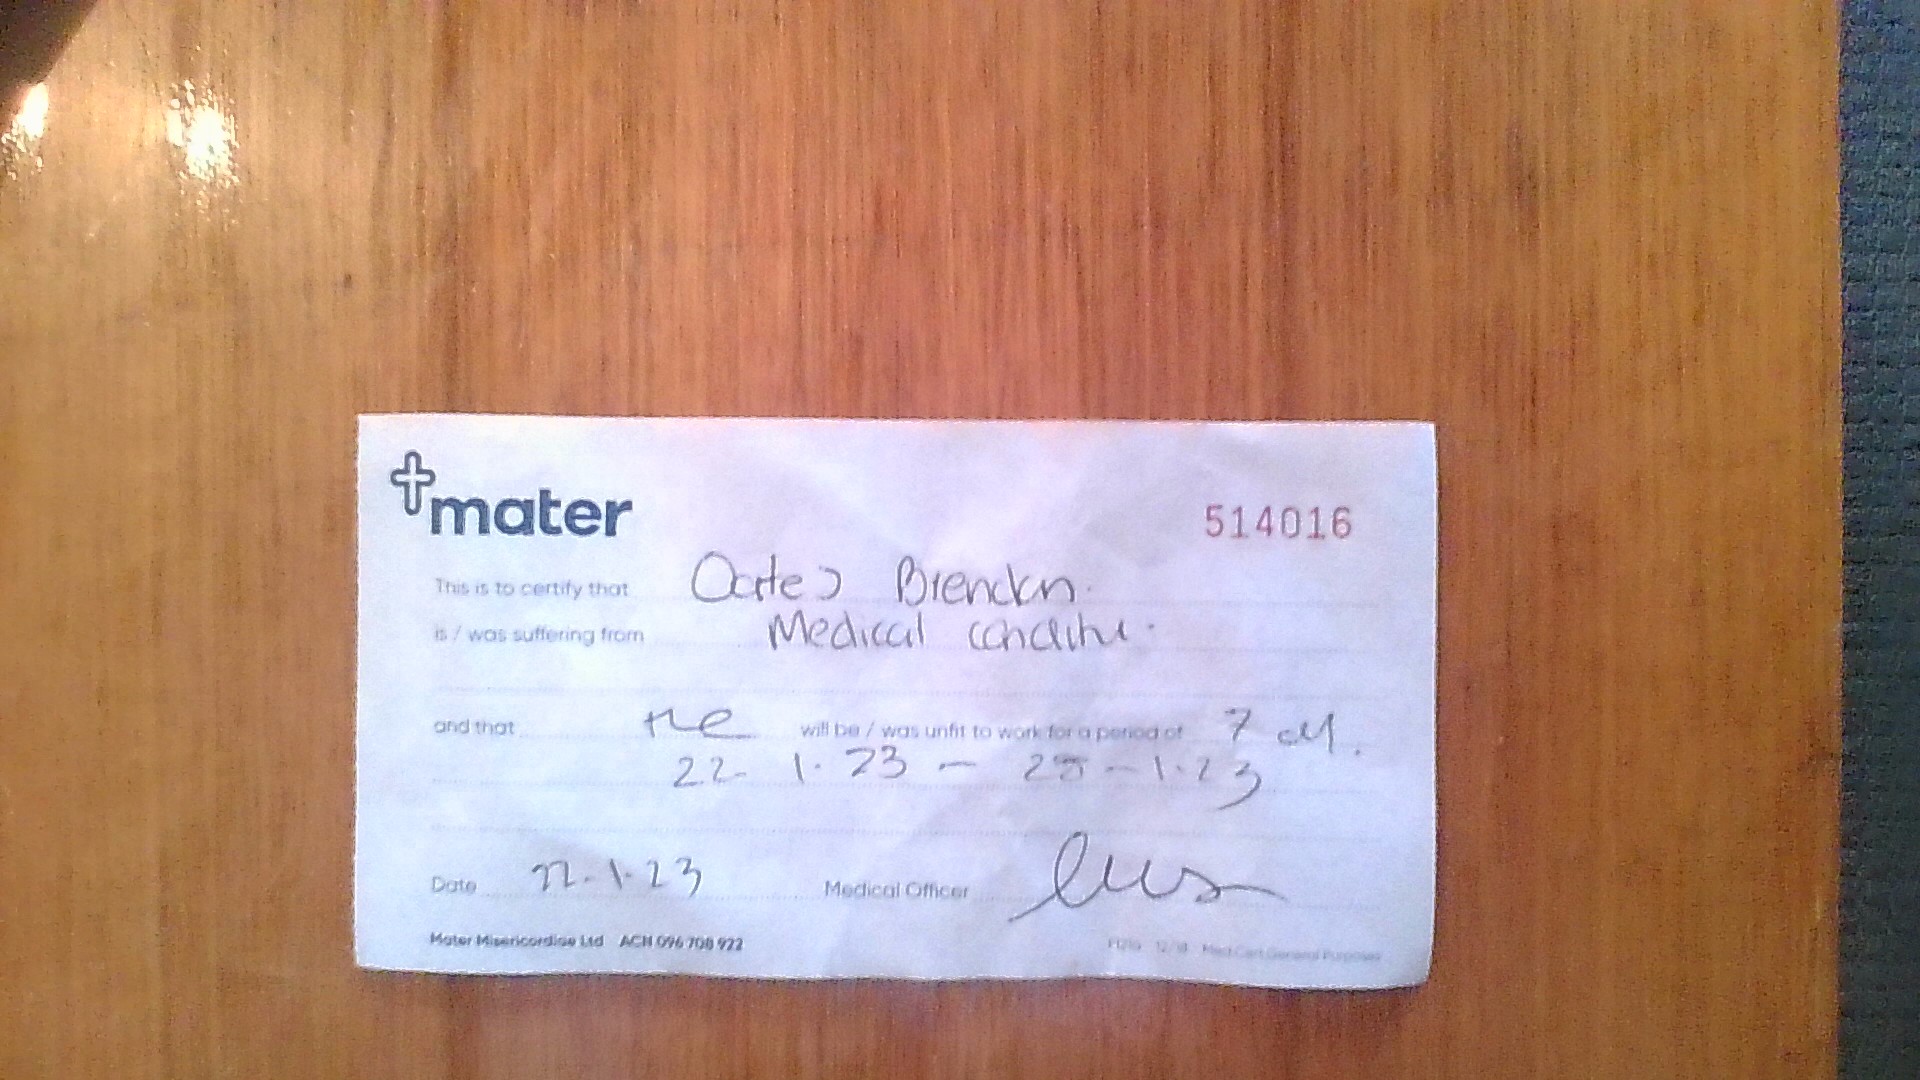 mater
514016
This is to certify that Oates Brendan.
is / was suffering from Medical condition.
and that He will be / was unfit to work for a period of 7
22. 1. 23 - 28 - 1.23
Date 22.1.23 Medical Officer
Mater Misericordiae Ltd ACN 096 708 922
12/18 Med Cert General Purposes